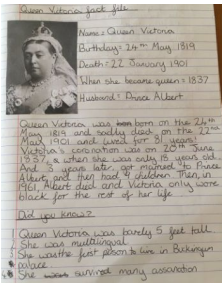 Queen Victoria fact file
Name = Queen Victoria
Birthday = 24th May 1819
Death = 22 January 1901
When she became queen = 1837
Husband = Prince Albert
Queen Victoria was born on the 24th
May 1819 and sadly died on the 22nd
May 1901 and lived for 81 years!
Victoria's coronation was on 20th June
1837, when she was only 18 years old.
And 3 years later, got married to Prince
Albert, and then had 9 children. Then, in
1961, Albert died and Victoria only wore
black for the rest of her life
Did you know?
Queen Victoria was barely 5 feet tall
She was multilingual
She was the first person to live in Buckingham
palace
She survived many